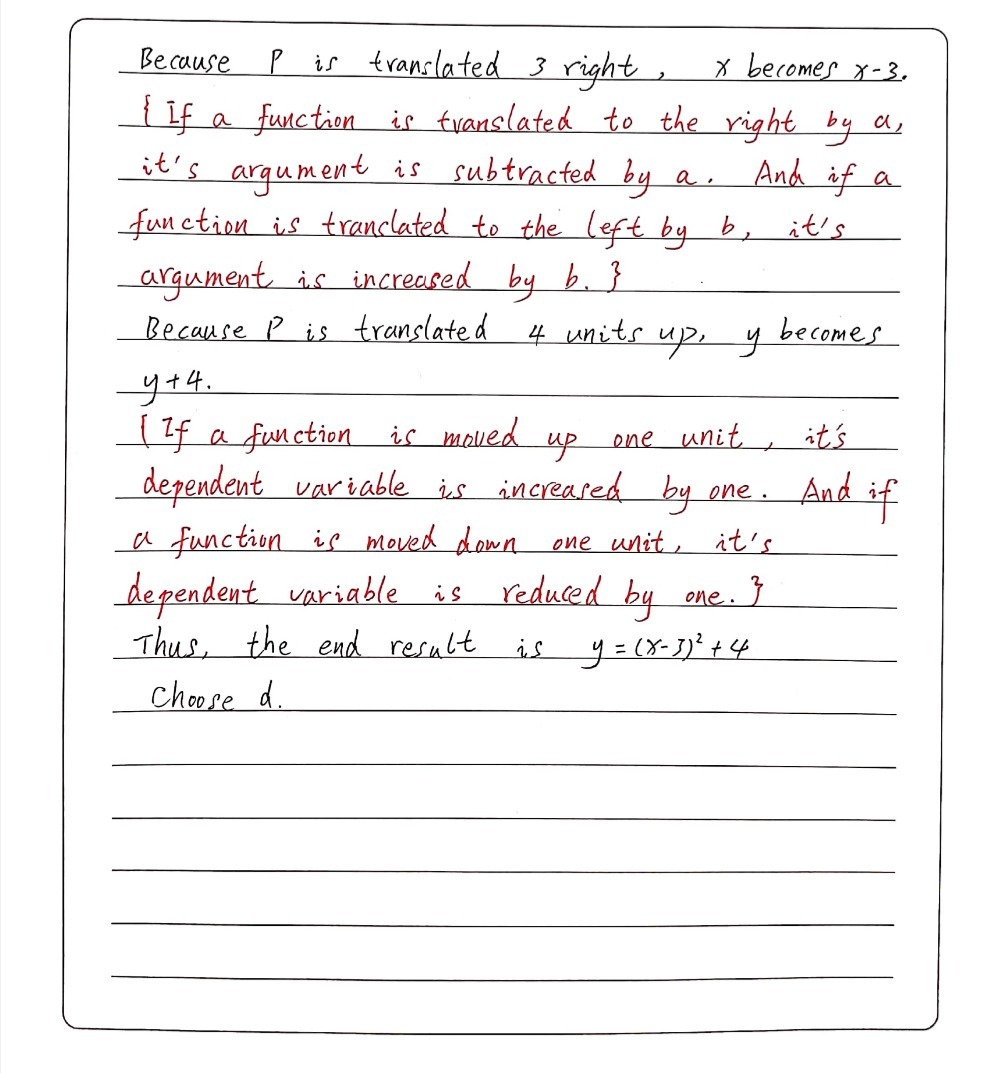 Because P is translated 3 right, x becomes x-3.
{ If a function is translated to the right by a,
it's argument is subtracted by a. And if a
function is translated to the left by b, it's
argument is increased by b. }
Because P is translated 4 units up, y becomes
y+4.
{ If a function is moved up one unit, it's
dependent variable is increased by one. And if
a function is moved down one unit, it's
dependent variable is reduced by one. }
Thus, the end result is y = (x-3)² + 4
Choose d.